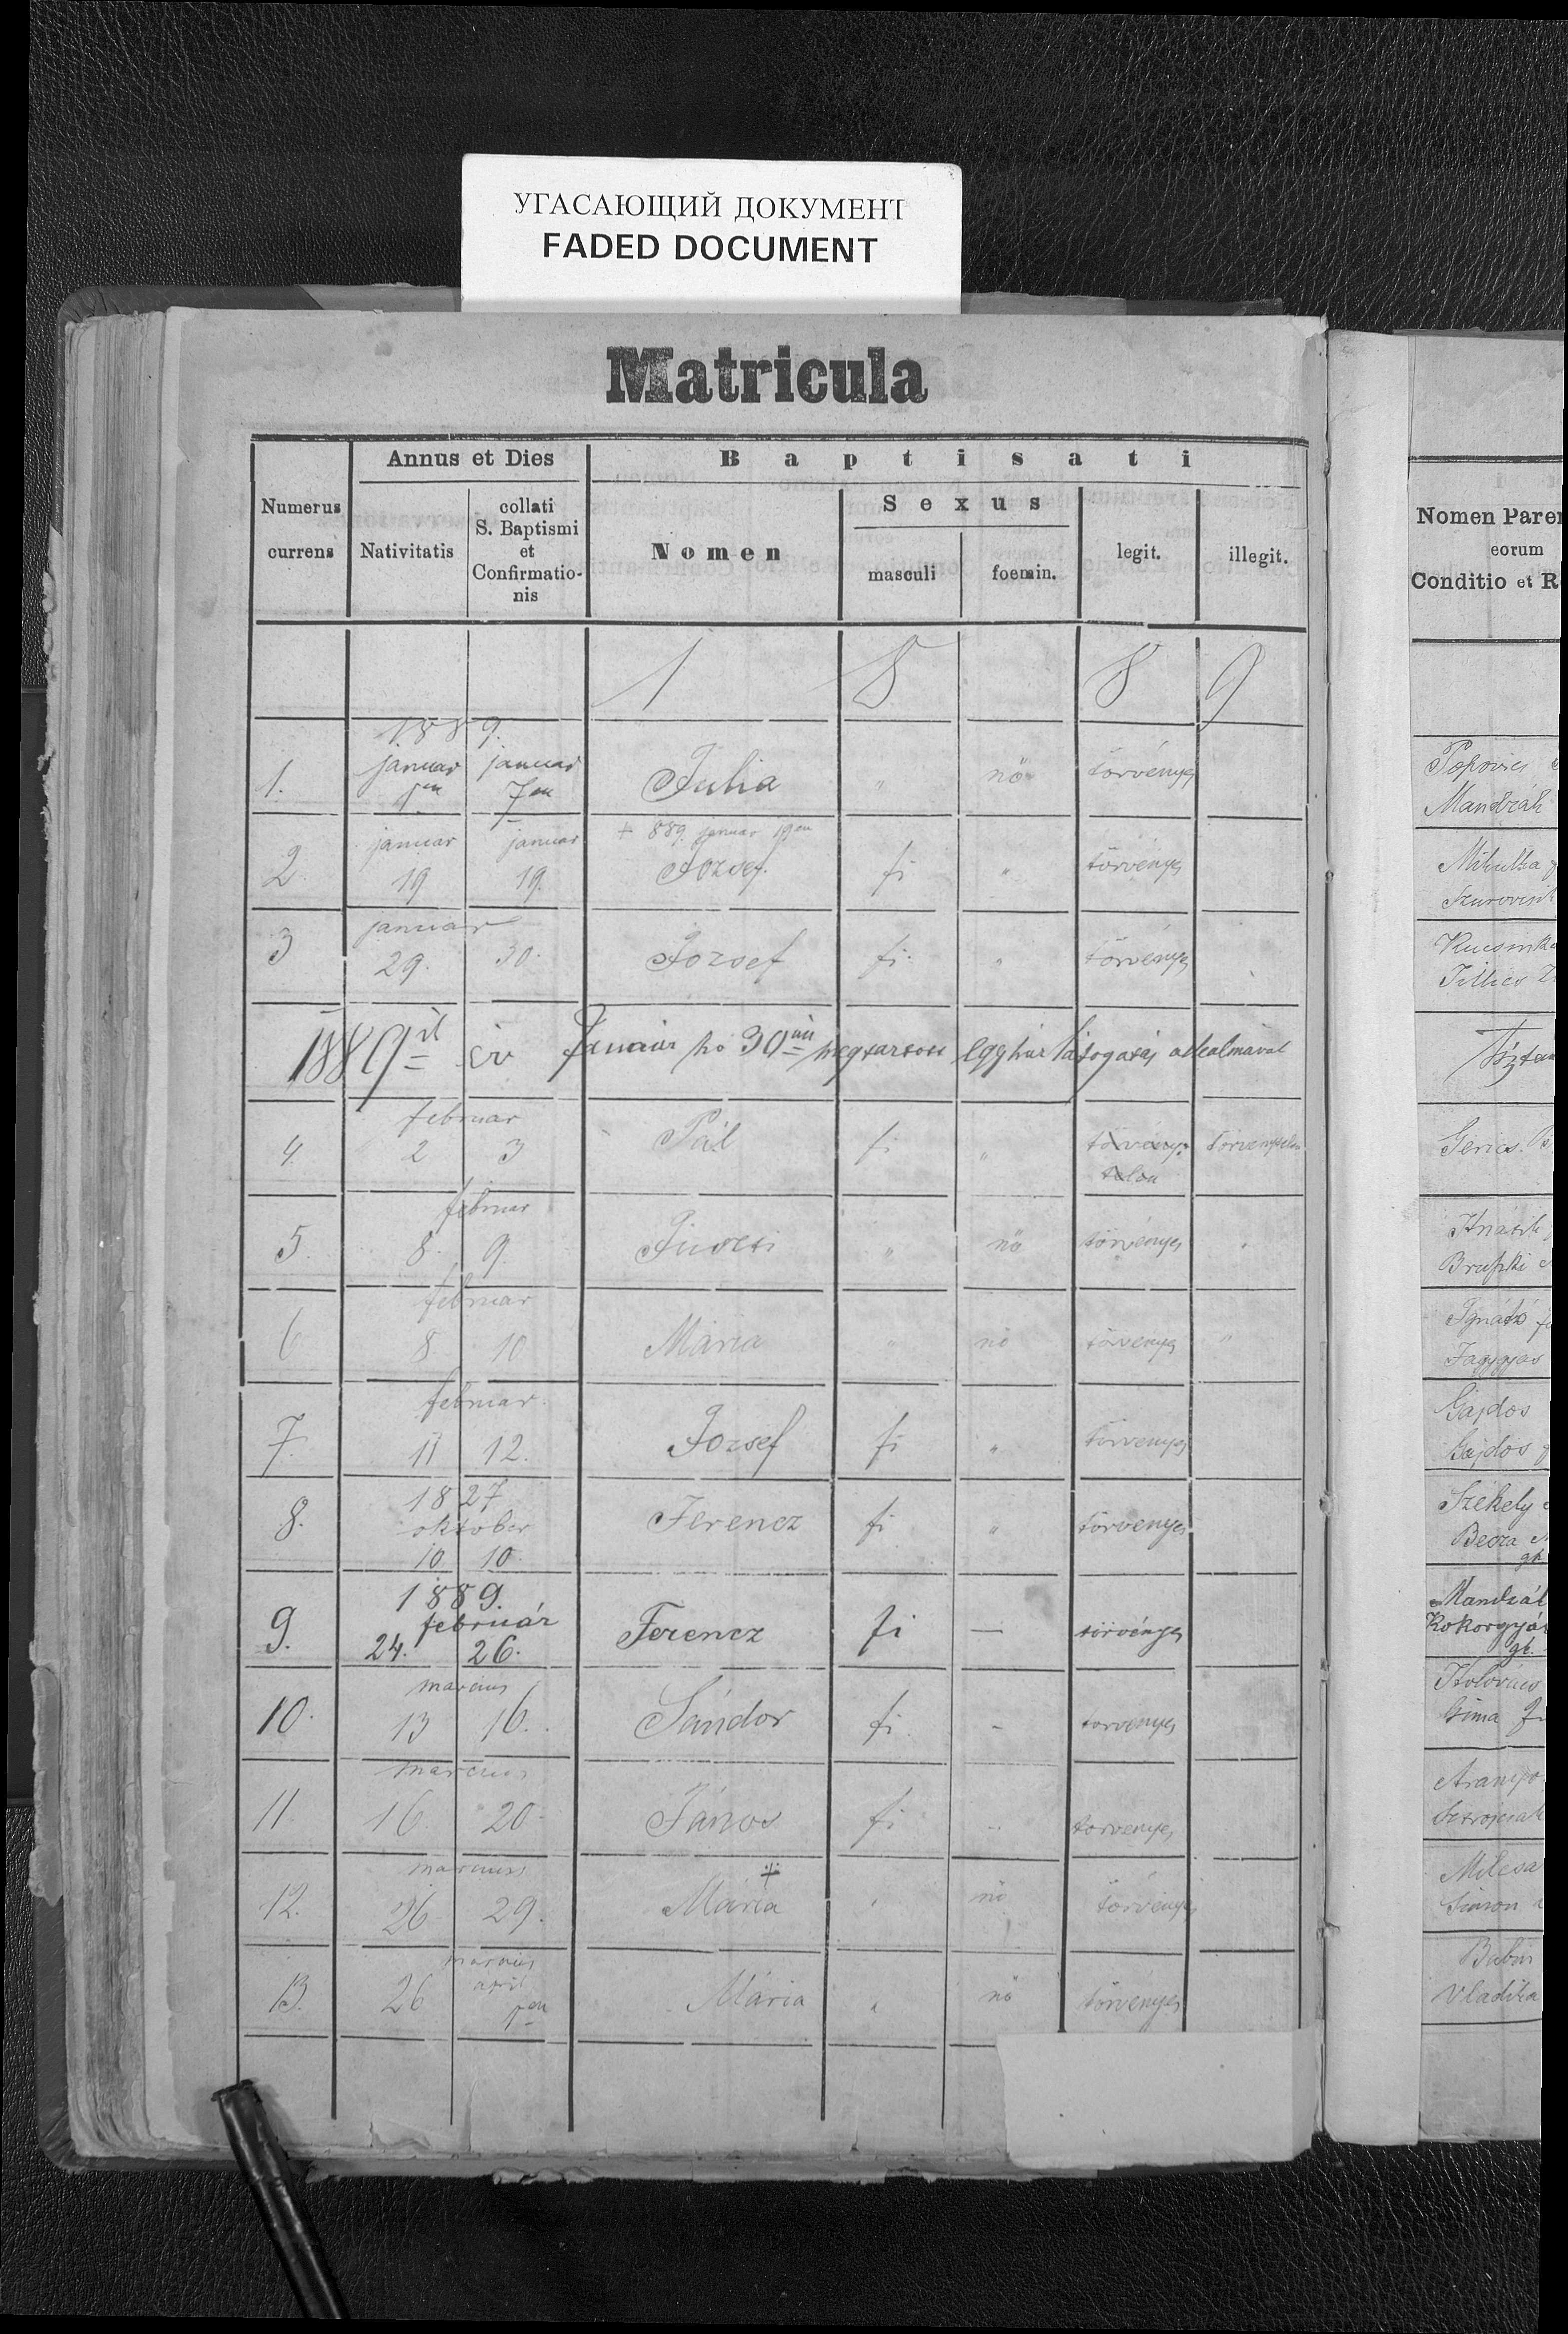 УГАСАЮЩИЙ ДОКУМЕНТ
FADED DOCUMENT
Matricula
Numerus currens
Annus et Dies
Nativitatis
collati S. Baptismi et Confirmatio-nis
Baptisati
Nomen
Sexus
masculi
foemin.
legit.
illegit.
Nomen Paren
eorum
Conditio et R
1 8 8 9
1889.
1. januar 1en januar 7en Julia " nő törvényes
Popovics
Mandzák
+ 889 januar 19en
2. januar 19 januar 19. József. fi " törvényes
3 januar 29. 30. József fi. " törvényes
1889ik év Január hó 30án megtartott egyház látogatás alkalmával
4. február 2 3 Pál fi " törvény telen törvénytelen
Gerics.
5 február 8. 9. " nő törvényes "
6 február 8 10 Mária " nő törvényes "
Ignátzó
7. február 11 12. József fi " törvényes
Gajdos
Gajdos
8. 1827 október 10 10. Ferencz fi " törvényes
Székely
9. 1889. február 24. 26. Ferencz fi — törvényes
Mandzák
gk.
10. marcius 13 16. Sándor fi - törvényes
Sima
11 marcius 16 20. János fi törvényes
12. marcius 26 29. Mária + nő törvényes
Simon
13. marcius 26 april 1en Mária " nő törvényes
Vladika